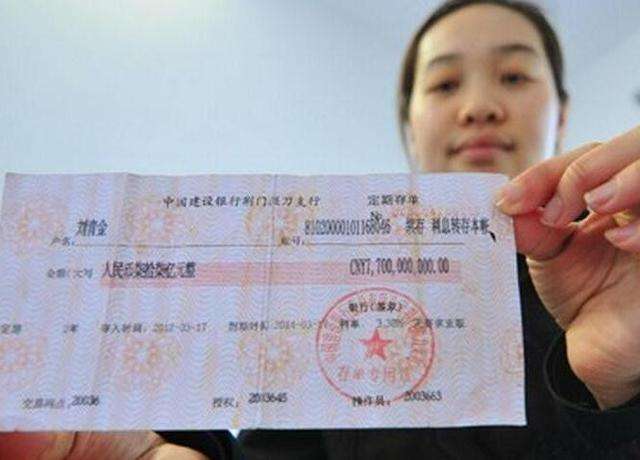 中国建设银行荆门掇刀支行 定期存单
户名: 刘青金 账号: 81020000101168046 转存 利息转存本账
金额(大写 人民币柒拾柒亿元整 CNY7,700,000,000.00
银行(签章)
定期 2年 存入时间: 2012-03-17 到期时间 2014-03-17 利率 3.30%
存单专用章
交易网点: 20036 授权: 2003645 操作员: 2003663